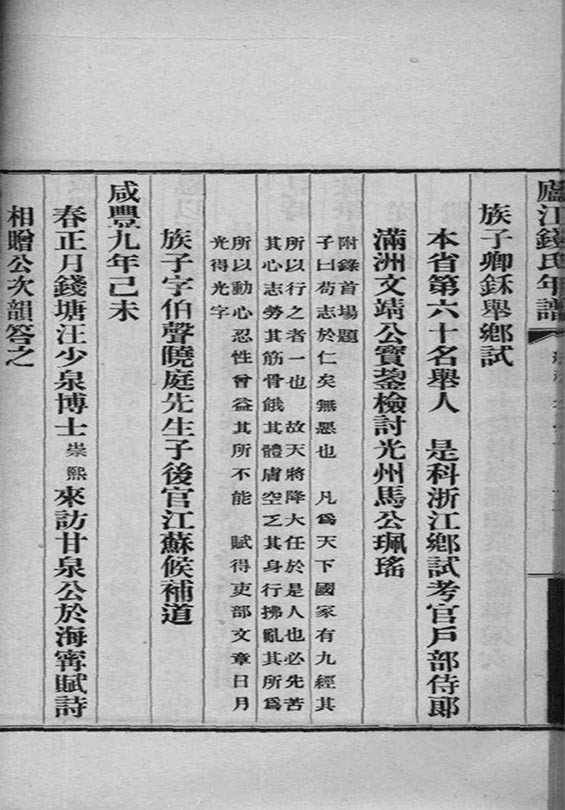 廬江錢氏年譜
族子卿鉌舉鄉試
本省第六十名舉人　是科浙江鄉試考官戶部侍郎
滿洲文靖公寶鋆檢討光州馬公珮瑤
附錄首場題
子曰苟志於仁矣無惡也　凡爲天下國家有九經其
所以行之者一也　故天將降大任於是人也必先苦
其心志勞其筋骨餓其體膚空乏其身行拂亂其所爲
所以動心忍性曾益其所不能　賦得吏部文章日月
光得光字
族子字伯聲曉庭先生子後官江蘇候補道
咸豐九年己未
春正月錢塘汪少泉博士崇熙來訪甘泉公於海寧賦詩
相贈公次韻答之